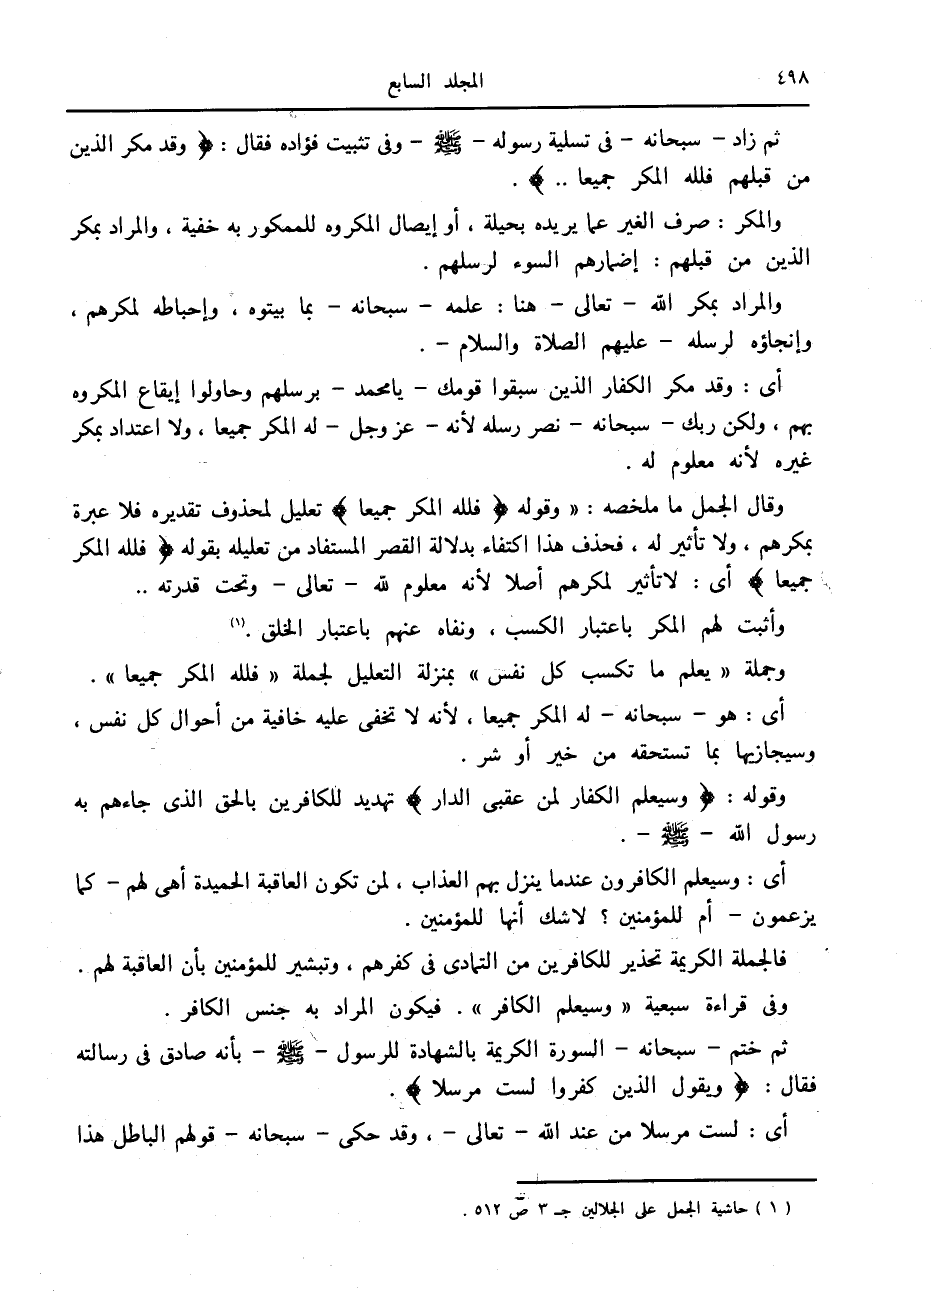 ٤٩٨
المجلد السابع
ثم زاد - سبحانه - فى تسلية رسوله - ﷺ - وفى تثبيت فؤاده فقال : ﴿ وقد مكر الذين
من قبلهم فلله المكر جميعا .. ﴾ .
والمكر : صرف الغير عما يريده بحيلة ، أو إيصال المكروه للممكور به خفية ، والمراد بمكر
الذين من قبلهم : إضمارهم السوء لرسلهم .
والمراد بمكر الله - تعالى - هنا : علمه - سبحانه - بما بيتوه ، وإحباطه لمكرهم ،
وإنجاؤه لرسله - عليهم الصلاة والسلام - .
أى : وقد مكر الكفار الذين سبقوا قومك - يامحمد - برسلهم وحاولوا إيقاع المكروه
بهم ، ولكن ربك - سبحانه - نصر رسله لأنه - عز وجل - له المكر جميعا ، ولا اعتداد بمكر
غيره لأنه معلوم له .
وقال الجمل ما ملخصه : « وقوله ﴿ فلله المكر جميعا ﴾ تعليل لمحذوف تقديره فلا عبرة
بمكرهم ، ولا تأثير له ، فحذف هذا اكتفاء بدلالة القصر المستفاد من تعليله بقوله ﴿ فلله المكر
جميعا ﴾ أى : لاتأثير لمكرهم أصلا لأنه معلوم لله - تعالى - وتحت قدرته ..
وأثبت لهم المكر باعتبار الكسب ، ونفاه عنهم باعتبار الخلق .(١)
وجملة « يعلم ما تكسب كل نفس » بمنزلة التعليل لجملة « فلله المكر جميعا » .
أى : هو - سبحانه - له المكر جميعا ، لأنه لا تخفى عليه خافية من أحوال كل نفس ،
وسيجازيها بما تستحقه من خير أو شر .
وقوله : ﴿ وسيعلم الكفار لمن عقبى الدار ﴾ تهديد للكافرين بالحق الذى جاءهم به
رسول الله - ﷺ - .
أى : وسيعلم الكافرون عندما ينزل بهم العذاب ، لمن تكون العاقبة الحميدة أهى لهم - كما
يزعمون - أم للمؤمنين ؟ لاشك أنها للمؤمنين .
فالجملة الكريمة تحذير للكافرين من التمادى فى كفرهم ، وتبشير للمؤمنين بأن العاقبة لهم .
وفى قراءة سبعية « وسيعلم الكافر » . فيكون المراد به جنس الكافر .
ثم ختم - سبحانه - السورة الكريمة بالشهادة للرسول - ﷺ - بأنه صادق فى رسالته
فقال : ﴿ ويقول الذين كفروا لست مرسلا ﴾ .
أى : لست مرسلا من عند الله - تعالى - ، وقد حكى - سبحانه - قولهم الباطل هذا
(١) حاشية الجمل على الجلالين جـ ٣ ص ٥١٢ .